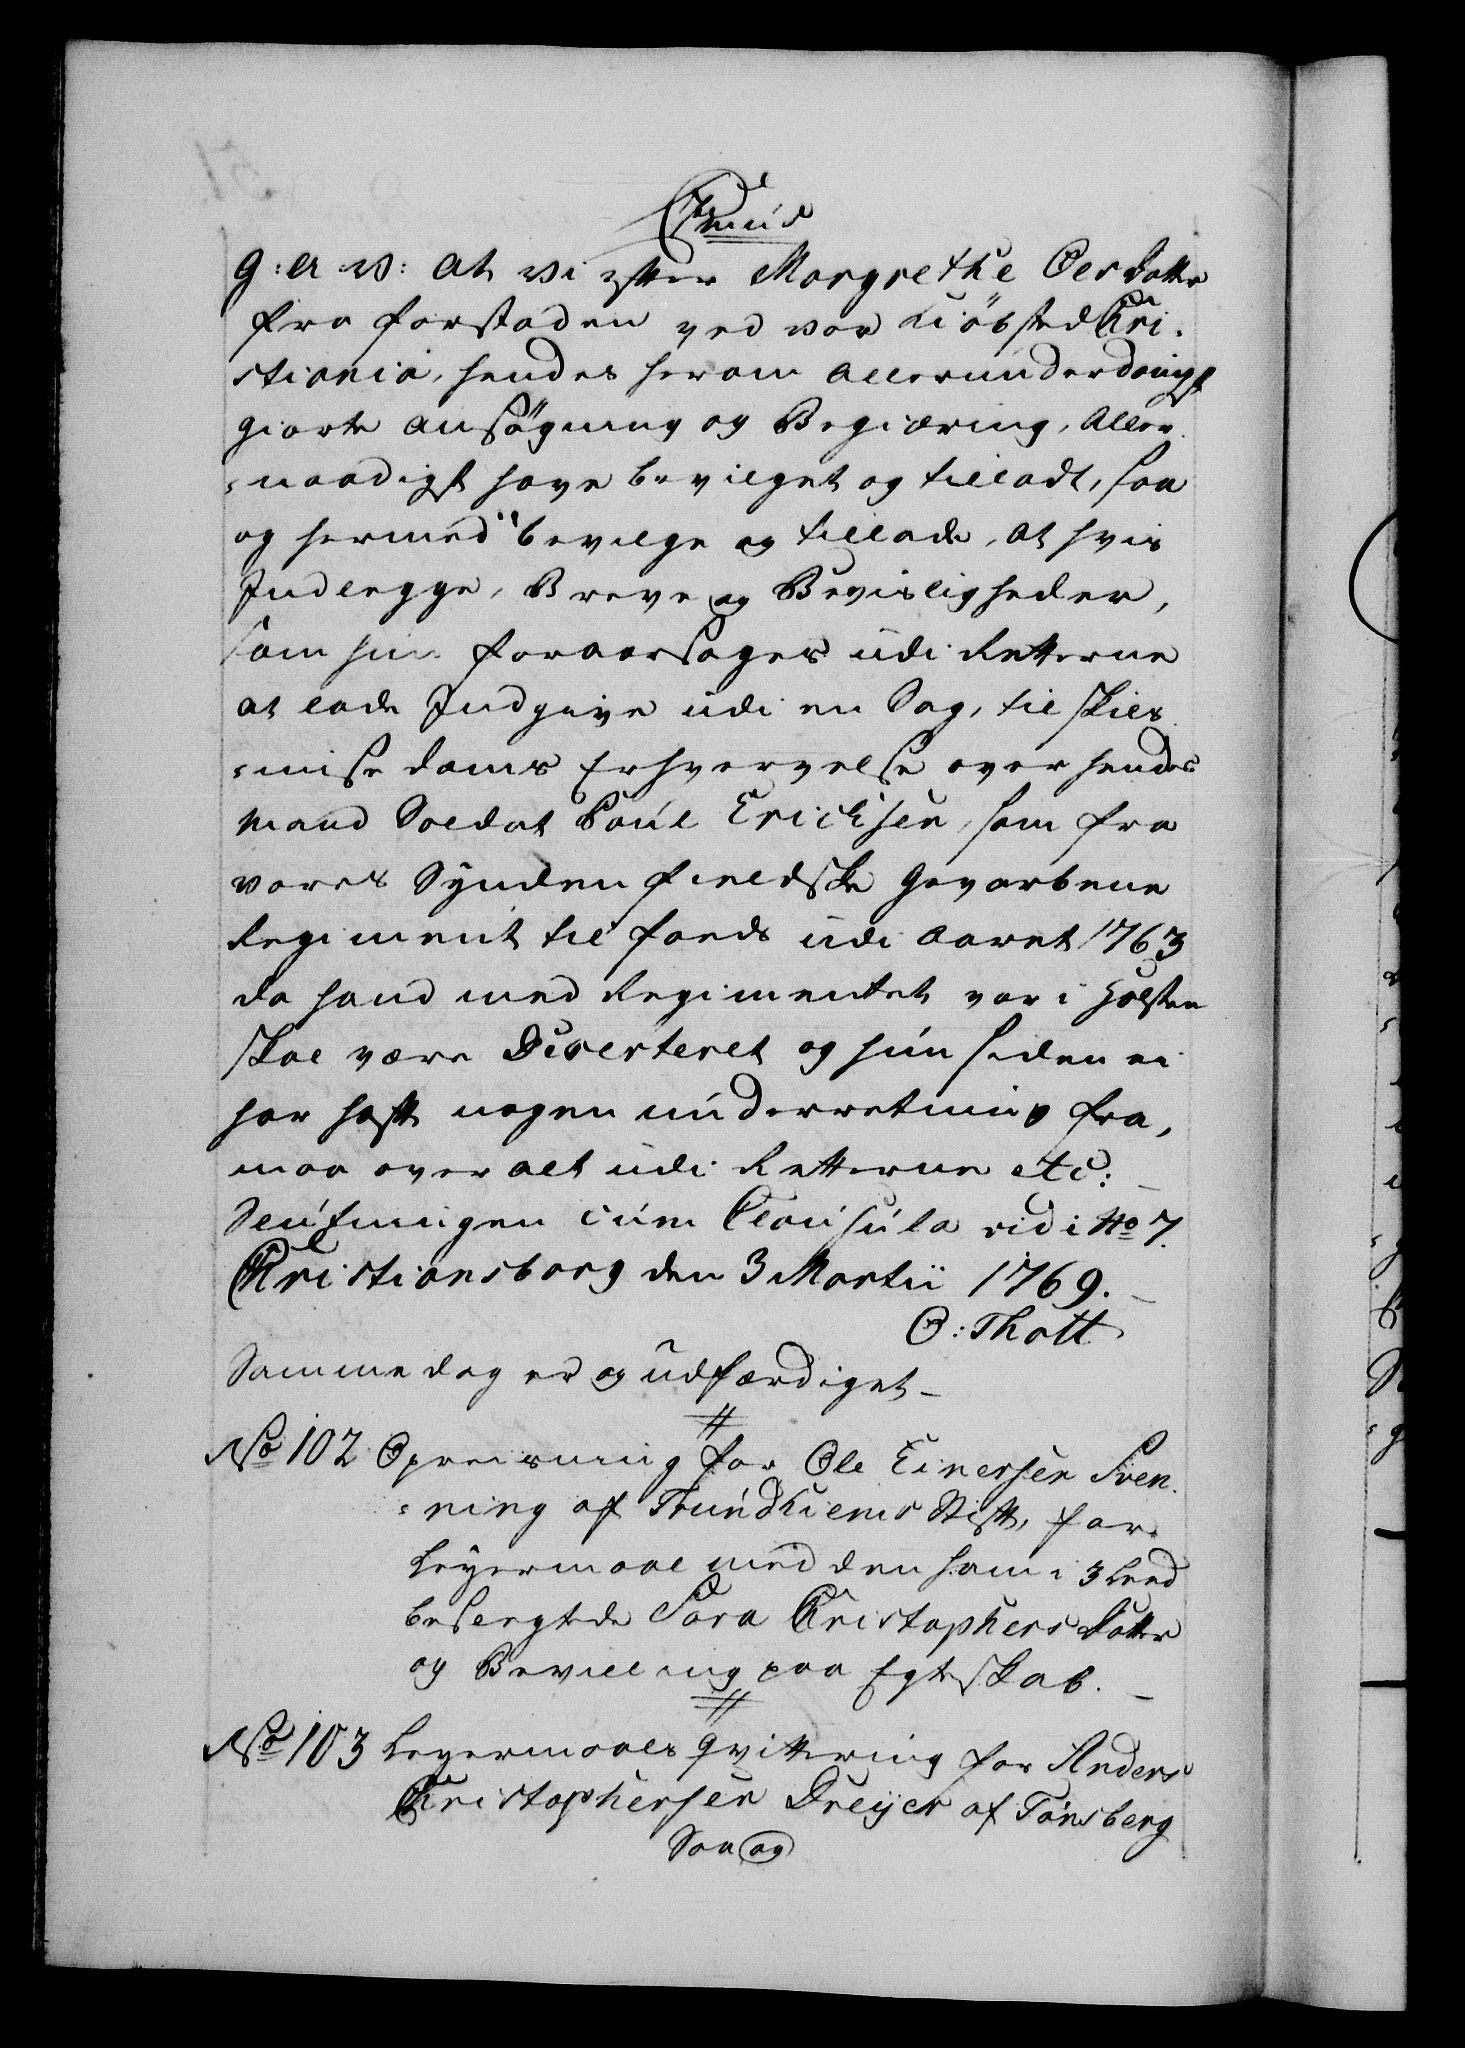 G: A: V: at vi efter Margrethe Oesdatter
fra forstaden ved vor Kiöbsted Chri-
stiania, hendes herom allerunderdanigst
giorte ansøgning og Begiæring, Aller-
naadigst have bevilget og tilladt, saa
og hermed bevilge og tillade, at hvis
Indlegge, Breve og Bevisligheder,
som hun foraarsages udi Retterne
at lade Indgive udi en Sag, til Skils-
misse doms Erhvervelse over hendes
Mand Soldat Poul Erichsen, som fra
vores Syndenfieldske Gevorbene
Regiment til foeds udi Aaret 1763
da hand med Regimentet var i Holsten
skal være Deserteret og hun siden ei
har haft nogen underretning fra,
maa over alt udi Retterne etc:
Slutningen cum Clausula vid: No 7.
Christiansborg den 3 Martii 1769.
O: Thott
Samme dag er og udfærdiget
No 102 Opreisning for Ole Einersen Sven-
ning af Trundhiems Stift, for
Leyermaal med den ham i 3 Leed
besvegtede Sara Christophersdatter
og Bevilling paa Egteskab.
No 103 Leyermaals Qvittering for Anders
Christophersen Dreijer af Tønsberg
Saa og